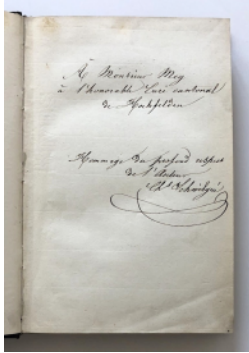 À Monsieur Mey
à l'honorable Curé cantonal
de Hochfelden
Hommage du profond respect
de l'Auteur
Ch.